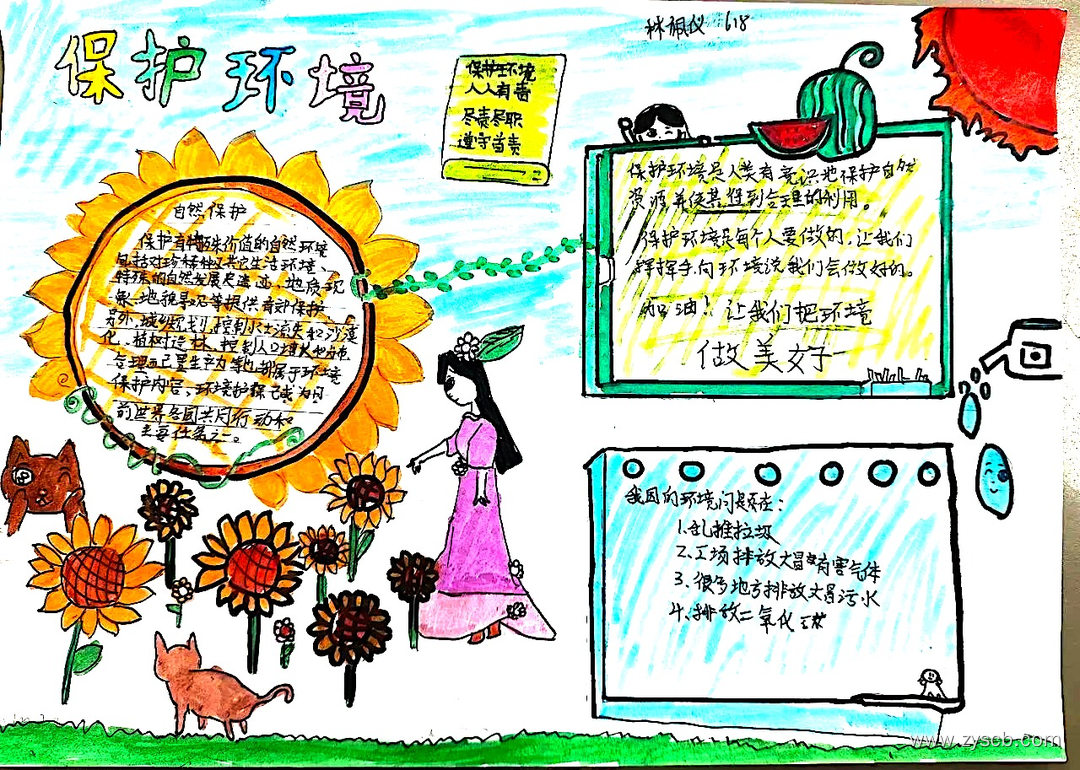 保护环境
林佩仪 618
保护环境
人人有责
尽责尽职
遵守首责
自然保护
保护有特殊价值的自然环境
包括对珍稀种及其它生活环境、
特殊的自然发展史遗迹、地质现
象、地貌景观等提供有效保护
另外,城乡规划,控制水土流失和沙漠
化、植树造林、控制人口增长和分布
合理配置生产力等也都属于环境
保护内容、环境护保已成为目
前世界各国共同行动和
主要任务之一。
保护环境是人类有意识地保护自然
资源并使其得到合理的利用。
保护环境是每个人要做的,让我们
挥挥手向环境说我们会做好的。
加油!让我们把环境
做美好
我国的环境问是在:
1.乱堆垃圾
2.工场排放大量有害气体
3.很多地方排放大量污水
4.排放二氧化碳
www.zyscb.com